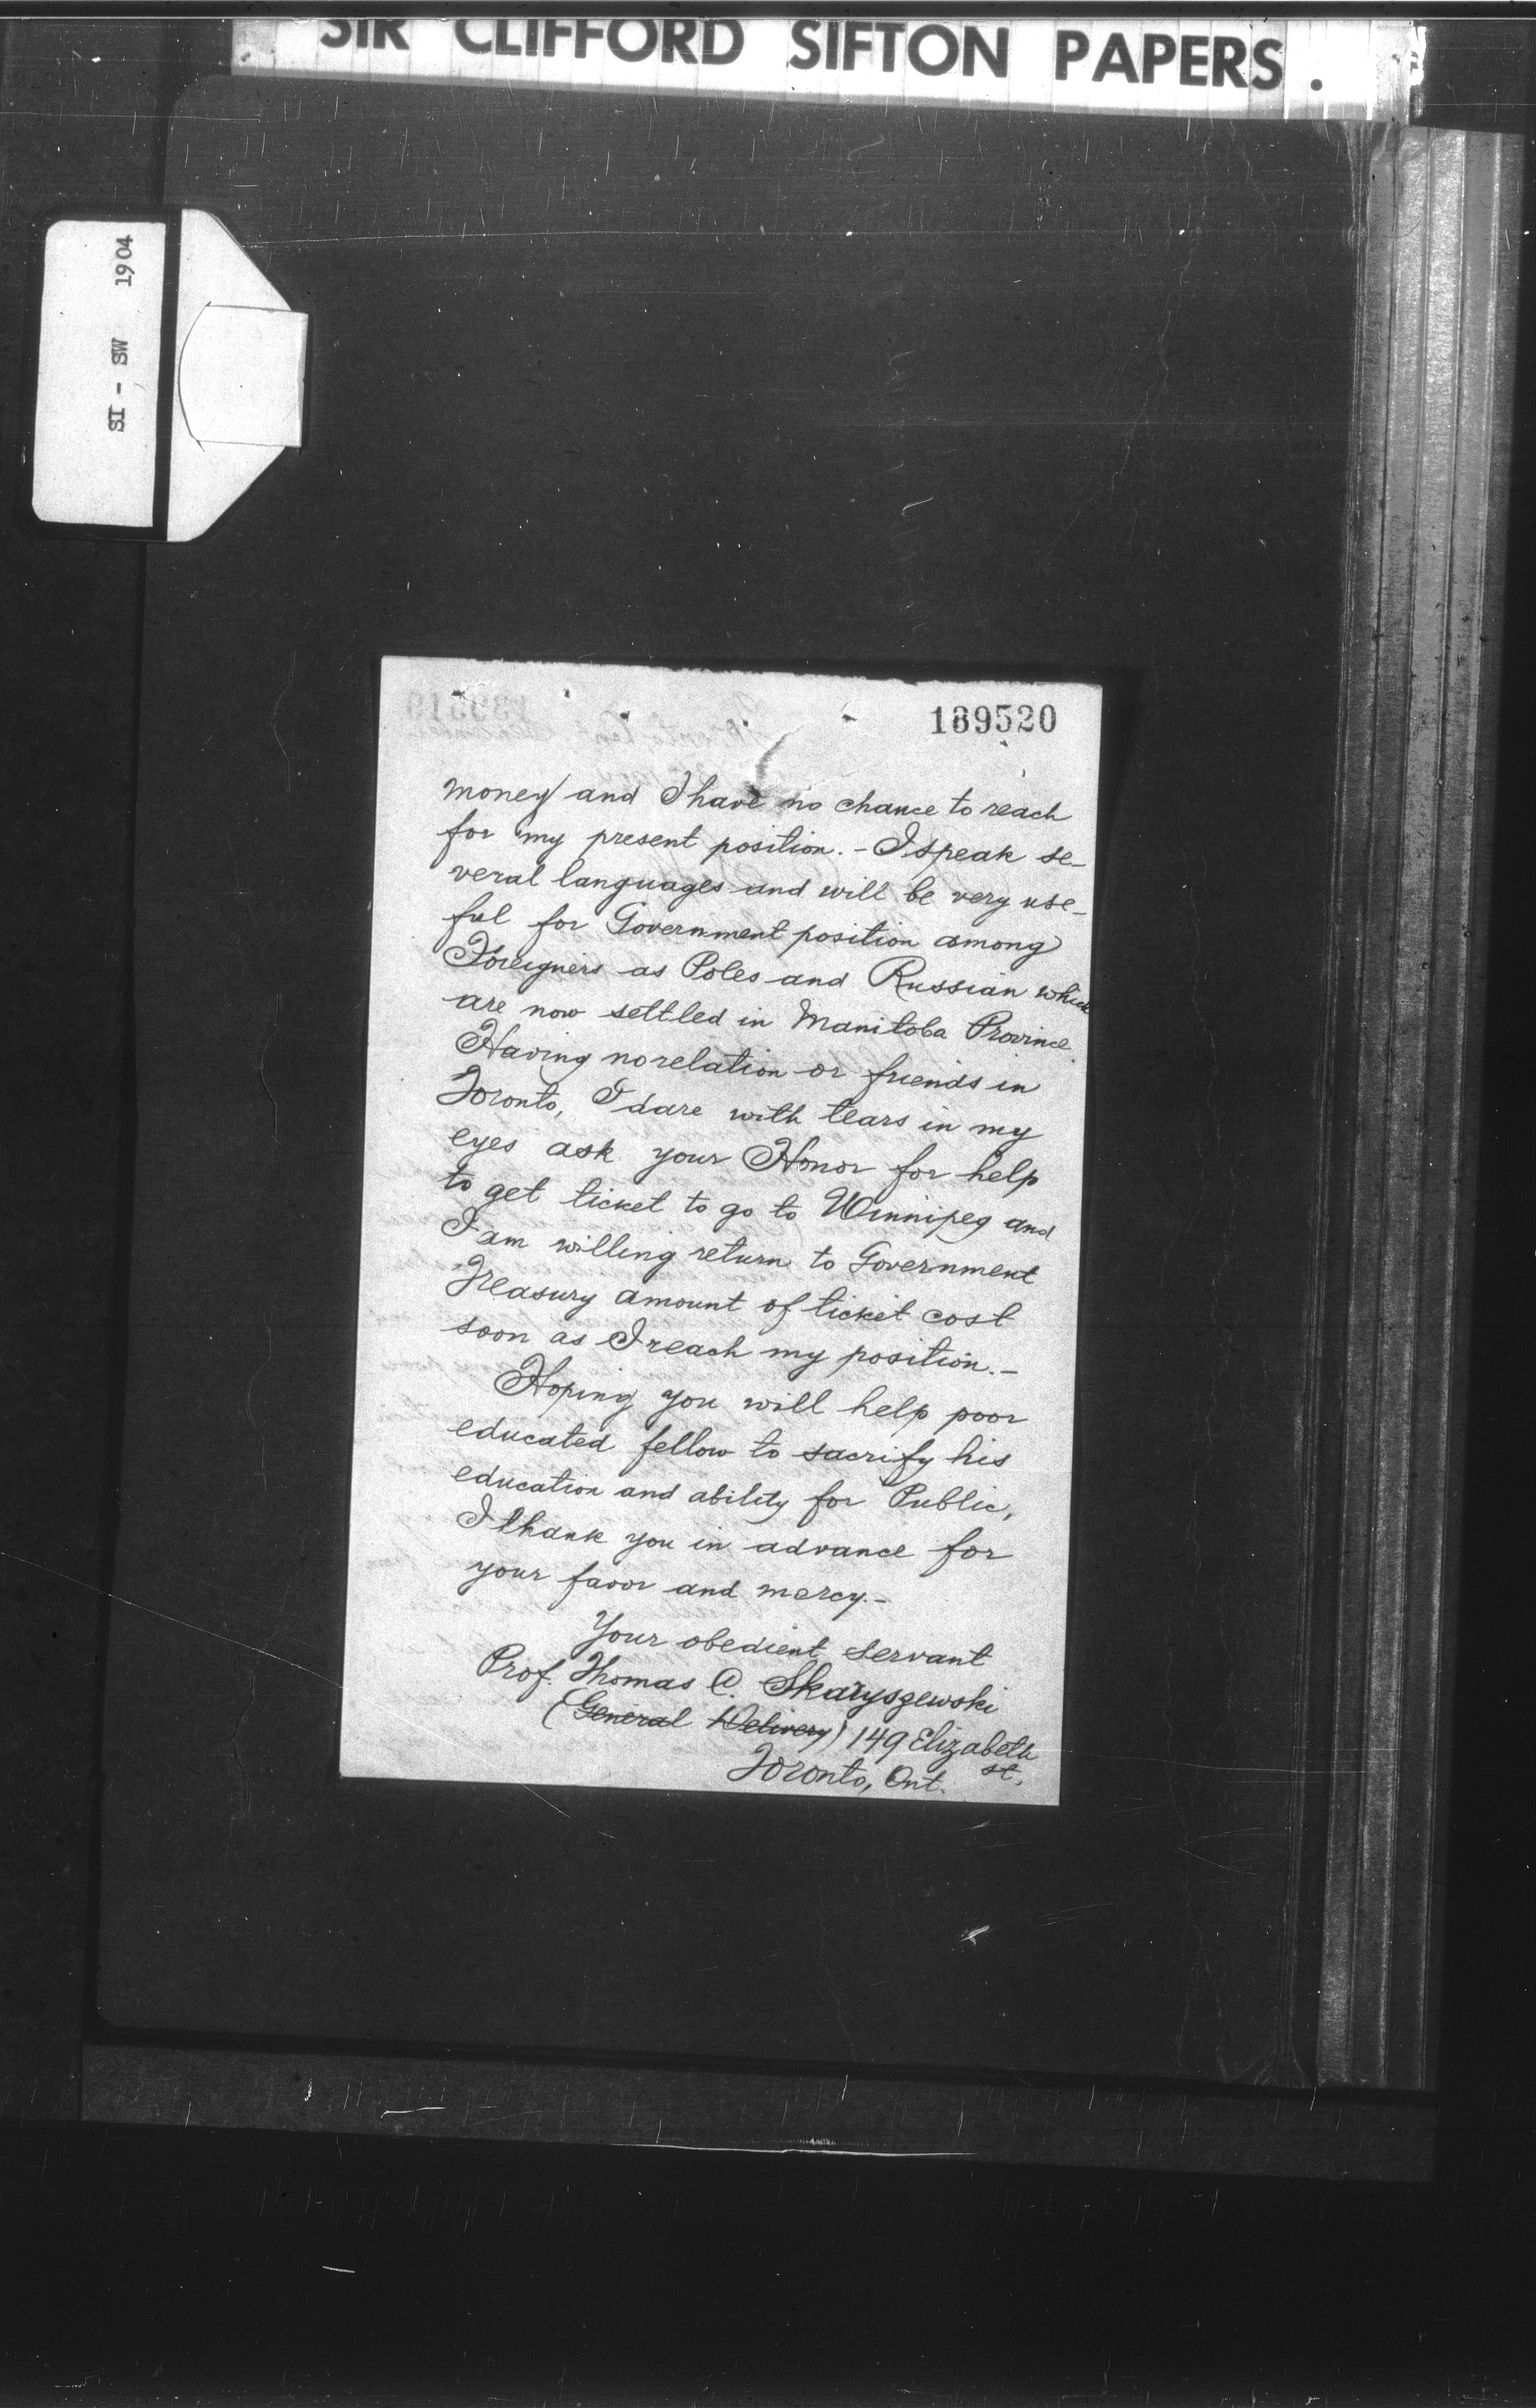 SIR CLIFFORD SIFTON PAPERS.
SI - SW 1904
189520
money and I have no chance to reach
for my present position. - I speak se-
veral languages and will be very use-
ful for Government position among
Foreigners as Poles and Russian which
are now settled in Manitoba Province.
Having no relation or friends in
Toronto, I dare with tears in my
eyes ask your Honor for help
to get ticket to go to Winnipeg and
I am willing return to Government
Treasury amount of ticket cost
soon as I reach my position. -
Hoping you will help poor
educated fellow to sacrify his
education and ability for Public,
I thank you in advance for
your favor and mercy. -
Your obedient servant
Prof. Thomas A. Skaryszewski
(General Delivery) 149 Elizabeth
st.
Toronto, Ont.